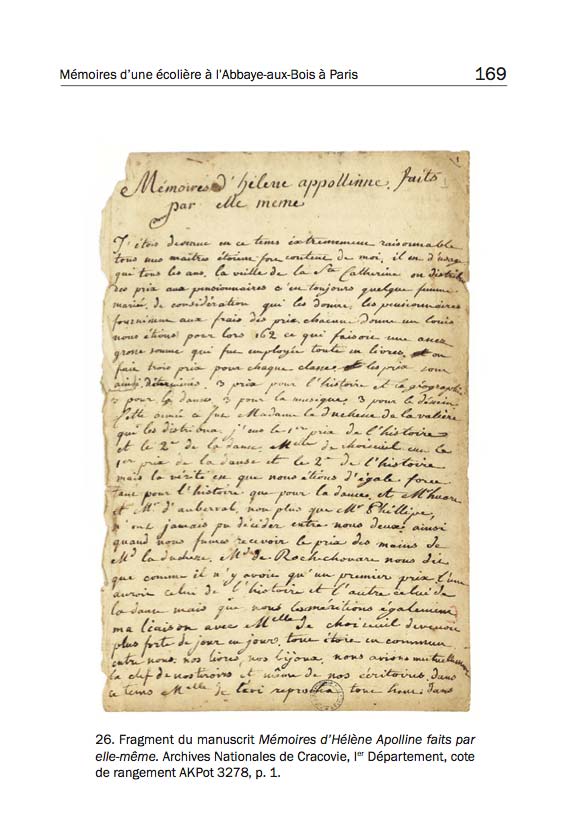 Mémoires d’une écolière à l’Abbaye-aux-Bois à Paris 169
Mémoires d'hélene appollinne. faits
par elle meme
J'étois devenue en ce tems extremement raisonnable
tous mes maitres étoient fort contents de moi, il en d'usage
qui tous les ans, la veille de la Ste Catherine on distribu
des prix aux pensionnaires c'en toujours quelque femme
mariée de considération qui les donne, les pensionnaires
fournissent aux frais des prix chacune donne un louis
nous étions pour lors 162 ce qui faisoit une assez
grosse somme qui fut employée toute en livres, on
fait trois prix pour chaque classe, les prix sont
ainsi déterminés. 3 prix pour l'histoire et la géographi
3 pour la danse, 3 pour la musique, 3 pour le dessein
cette année ce fut Madame la duchesse de la valière
qui les distribua, j'eus le 1er prix de l'histoire
et le 2e de la danse, Melle de choiseuil eut le
1er prix de la danse et le 2e de l'histoire
mais la vérité en que nous étions d'égale force
tant pour l'histoire que pour la danse, et Mr huart
et Mr d'auberval, non plus que Mr Phillipe,
n'ont jamais pu décider entre nous deux, ainsi
quand nous fumes recevoir le prix des mains de
Md la duchesse, Md de Rochechouart nous dit
que comme il n'y avoit qu'un premier prix l'une
auroit celui de l'histoire et l'autre celui de
la danse mais que nous les méritions également
ma liaison avec Melle de choiseuil devenoit
plus forte de jour en jour, tout étoit en commun
entre nous, nos livres, nos bijoux, nous avions mutuellement
la clef de nos tiroirs et même de nos écritoires, dans
ce tems Melle de Lévi reprocha tout haut dans
26. Fragment du manuscrit Mémoires d’Hélène Apolline faits par
elle-même. Archives Nationales de Cracovie, Ier Département, cote
de rangement AKPot 3278, p. 1.